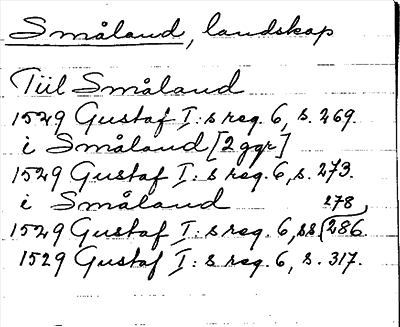 Småland, landskap
Till Småland
1529 Gustaf I:s reg. 6, s. 269.
i Småland [2 ggr]
1529 Gustaf I:s reg. 6, s. 273.
i Småland 278,
1529 Gustaf I:s reg. 6, ss 286.
1529 Gustaf I:s reg. 6, s. 317.